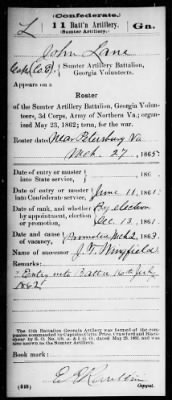 (Confederate.)
L 11 Batt'n Artillery. Ga.
(Sumter Artillery.)
John Lane
Capt. (Co. C), Sumter Artillery Battalion,
Georgia Volunteers.
Appears on a
Roster
of the Sumter Artillery Battalion, Georgia Volun-
teers, 3d Corps, Army of Northern Va; organ-
ized May 23, 1862; term, for the war.
Roster dated Near Petersburg Va
Mch. 27, 1865.
Date of entry or muster
into State service,
Date of entry or muster
into Confederate service, June 11, 1861.
Date of rank, and whether By election
by appointment, election
or promotion, Dec. 13, 1861.
Date and cause Promotion Mch 2, 1863.
of vacancy,
Name of successor J. T. Wingfield
Remarks:
Entry into Batt'n 16th July
1862
The 11th Battalion Georgia Artillery was formed of the com-
also known as the Sumter Artillery.
Book mark:
(648) Copyist.